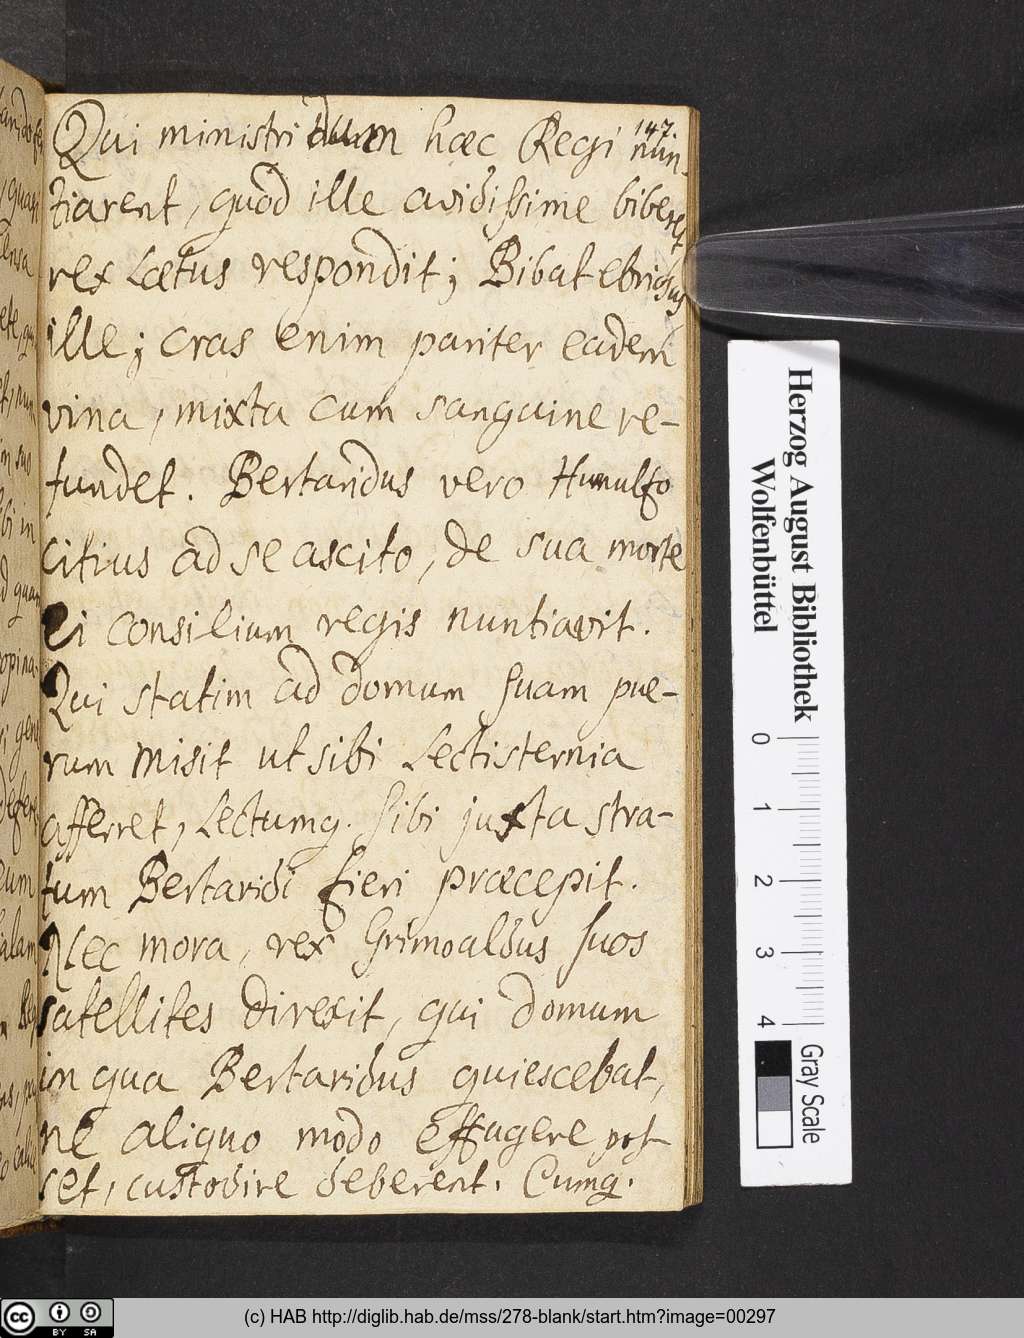 147.
Qui ministri dum hæc Regi nun-
tiarent, quod ille avidissime biberet
rex Lætus respondit; Bibat ebriosus
ille; cras enim pariter eadem
vina, mixta cum sanguine re-
fundet. Bertaridus vero Hunulfo
citius ad se ascito, de sua morte
ei consilium regis nuntiavit.
Qui statim ad domum suam pue-
rum misit ut sibi Lectisternia
afferret, Lectumq. sibi juxta stra-
tum Bertaridi fieri præcepit.
Nec mora, rex Grimoaldus suos
satellites direxit, qui domum
in qua Bertaridus quiescebat,
ne aliquo modo effugere pos-
set, custodire deberent. Cumq.
Herzog August Bibliothek
Wolfenbüttel
0 1 2 3 4
Gray Scale
cc BY SA
(c) HAB http://diglib.hab.de/mss/278-blank/start.htm?image=00297